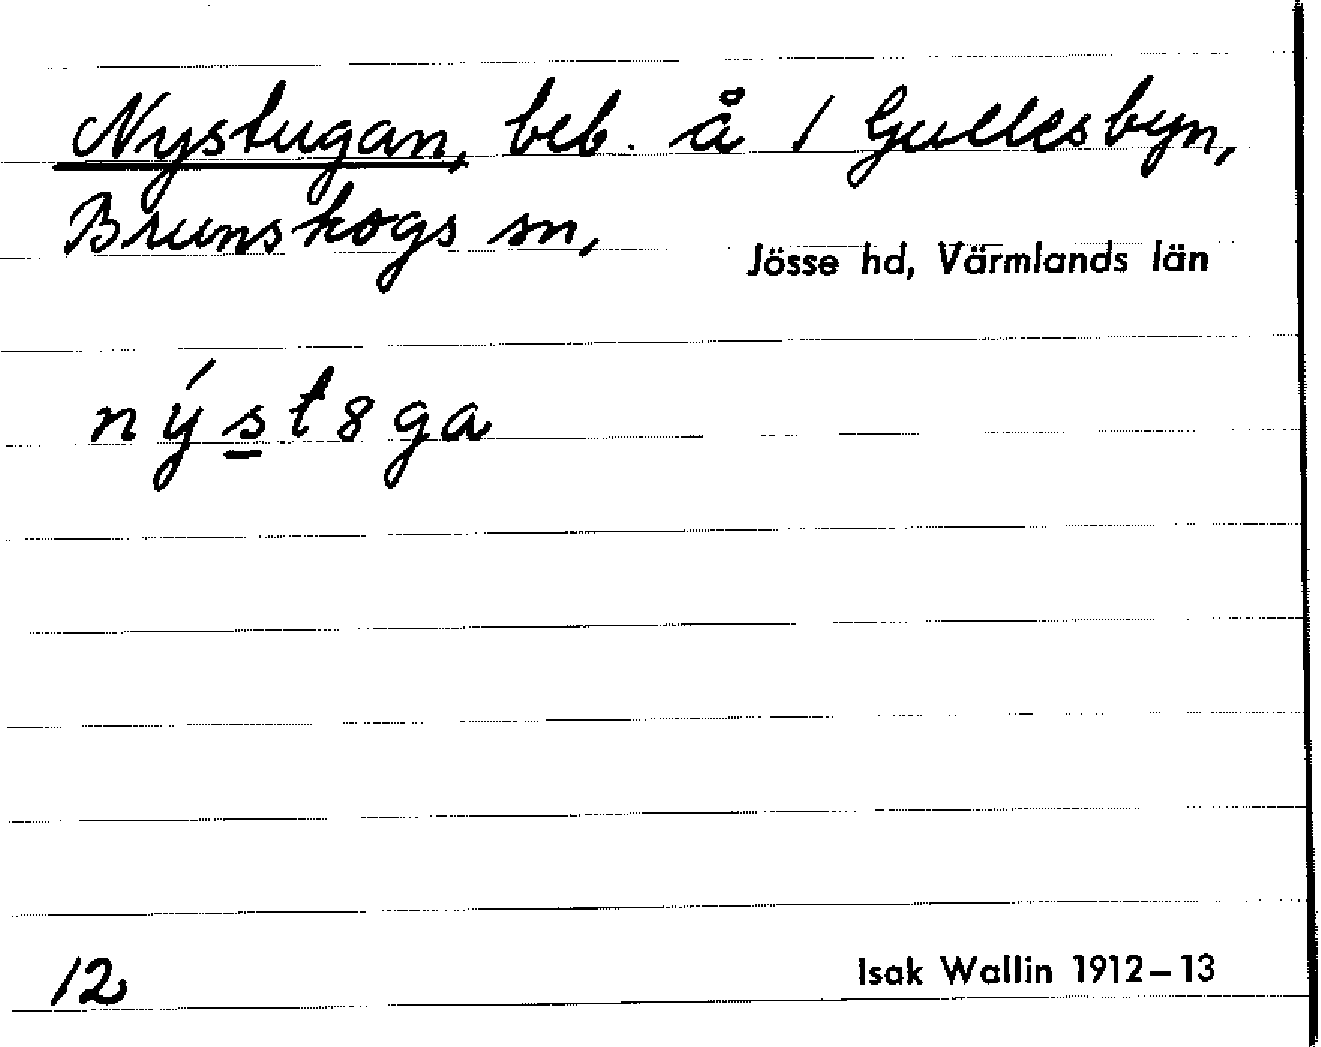 Nystugan, beb. å 1 Gullesbyn,
Brunskogs sn, Jösse hd, Värmlands län
nýst8ga
12 Isak Wallin 1912–13